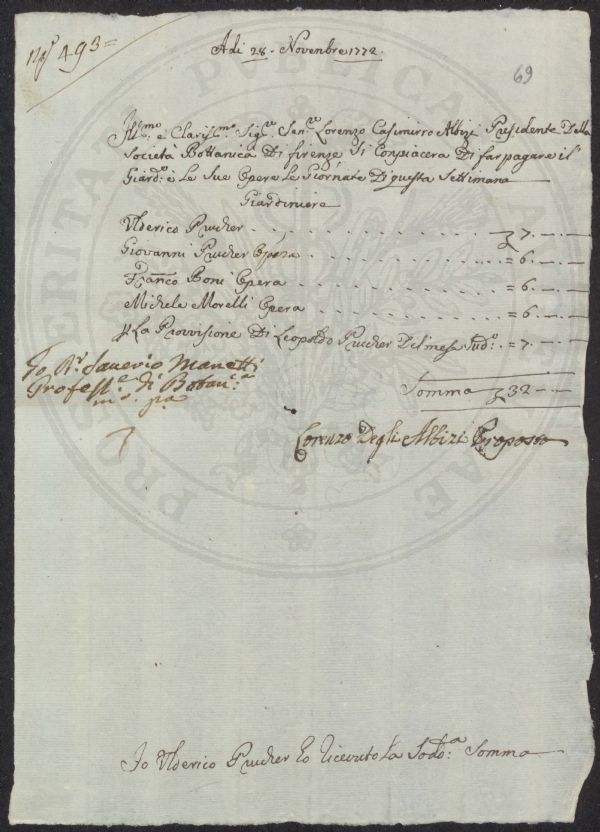 N.º 493=
Adi 28. Novenbre 1772.
69
Ill.mo e Claris.mo Sig.re Sen.re Lorenzo Casimirro Albizi Presidente Della
Società Bottanica Di firenze Si Conpiacera Di far pagare il
Giard.e e Le Sue Opere Le Giornate Di questa Settimana
Giardiniere
Ulderico Prucher . . . . . . . . . . . 7. — —
Giovanni Prucher Opera . . . . . . . . . . = 6. — —
Fran.co Boni Opera . . . . . . . . . . = 6. — —
Michele Morelli Opera . . . . . . . . . . = 6. — —
p La Provvisione Di Leopoldo Prucher Del mese Sud.o = 7. — —
Somma 32 — —
Io D.r Saverio Manetti
Profess.e di Botan.ca
m.o p.a
Lorenzo Degli Albizi Proposto
Io Ulderico Prucher ho ricevuto La Sod.a Somma
PUBLICAE
PROSPERITATI